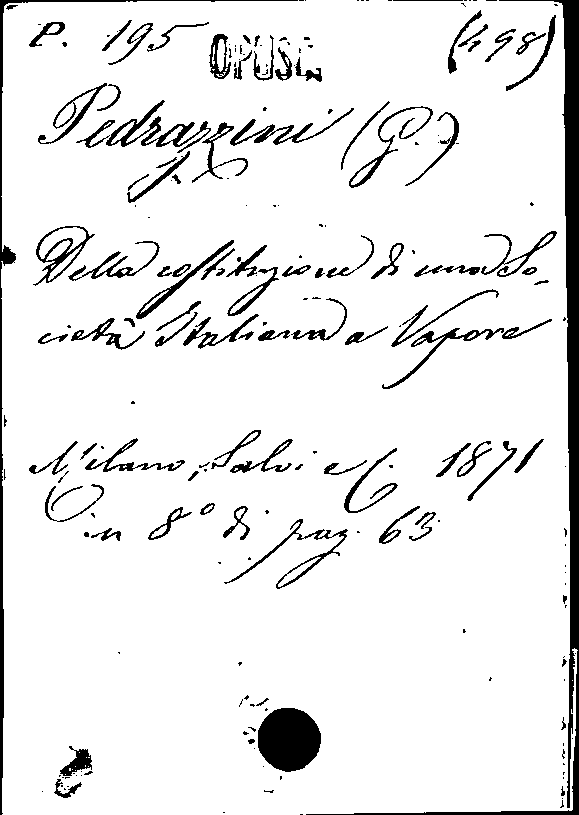 P. 195 OPUSC. (498)
Pedrazzini (G.)
Della costituzione di una So-
cietà Italiana a Vapore
Milano, Salvi e C. 1871
in 8° di pag. 63